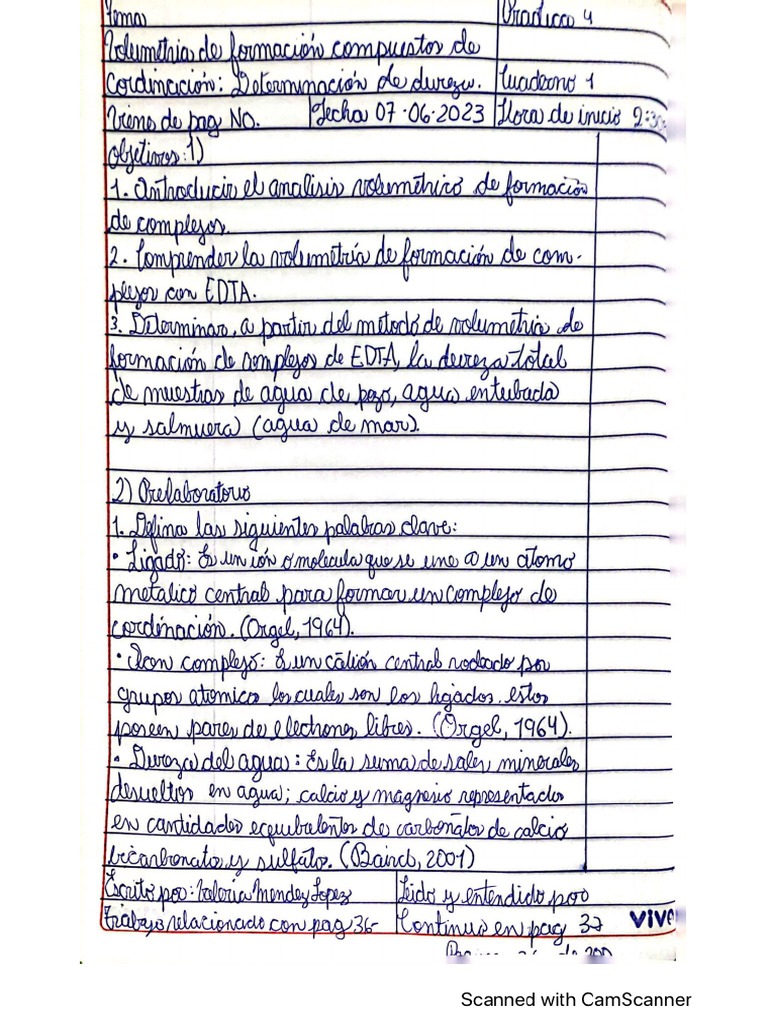 Tema Practica 4
Volumetria de formación compuestos de
cordinación: Determinación de dureza. Cuaderno 1
Viene de pag NO. Fecha 07-06-2023 Hora de inicio 2:30
Objetivos: 1)
1. Introducir el analisis volumétrico de formación
de complejos.
2. Comprender la volumetría de formación de com-
plejos con EDTA.
3. Determinar, a partir del metodo de volumetria de
formación de complejos de EDTA, la dureza total
de muestras de agua de pozo, agua entubada
y salmuera (agua de mar).
2) Prelaboratorio
1. Defina las siguientes palabras clave:
• Ligado: Es un ión o molecula que se une a un átomo
metalico central para formar un complejo de
cordinación. (Orgel, 1964).
• Ion complejo: Es un catión central rodeado por
grupos atomicos los cuales son los ligados, estos
poseen pares de electrones libres. (Orgel, 1964).
• Dureza del agua: Es la suma de sales minerales
desueltos en agua; calcio y magnesio representados
en cantidades equibalentes de carbonatos de calcio
bicarbonato y sulfato. (Baird, 2001)
Escrito por: Valeria Mendez Lopez Leido y entendido por
Trabajo relacionado con pag 36- Continuo en pag 37
VIVA
Scanned with CamScanner